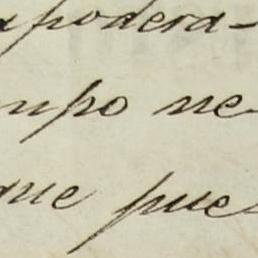 apodera-
mpo ne-
que pue